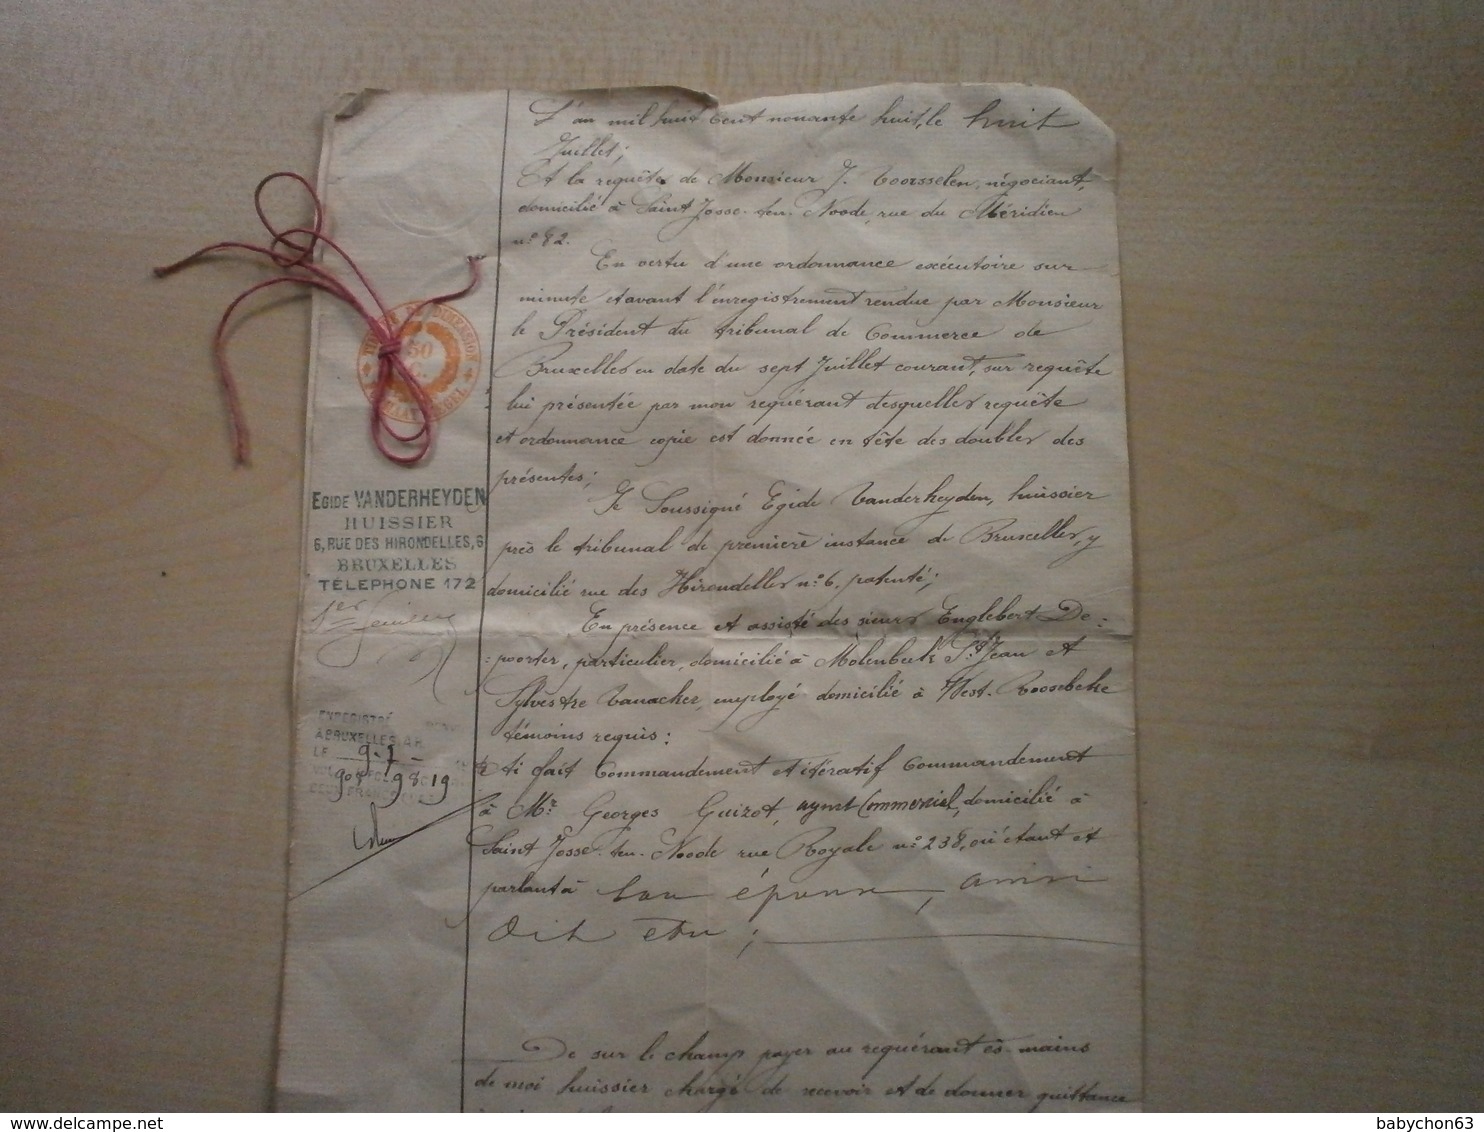 L'an mil huit cent nonante huit, le huit
Juillet;
Et la requête de Monsieur J. Voorsselen, négociant,
domicilié à Saint Josse-ten-Noode, rue du Méridien
n° 82.
En vertu d'une ordonnance exécutoire sur
minute et avant l'enregistrement rendue par Monsieur
le Président du tribunal de Commerce de
Bruxelles en date du sept Juillet courant, sur requête
lui présentée par mon requérant desquelles requête
et ordonnance copie est donnée en tête des doubles des
présentes;
Je Soussigné Egide Vanderheyden, huissier
près le tribunal de première instance de Bruxelles, y
domicilié rue des Hirondelles n° 6, patenté;
En présence et assisté des sieurs Englebert De=
=poorter, particulier, domicilié à Molenbeek St Jean et
Sylvèstre Vanacker, employé domicilié à West-Roosebeke
témoins requis:
fait Commandement et itératif Commandement
à Mr Georges Guizot, agent Commercial, domicilié à
Saint Josse-ten-Noode rue Royale n° 238, où étant et
parlant à son épouse, ainsi
dit être;
De sur le champ payer au requérant ès-mains
de moi huissier chargé de recevoir et de donner quittance
50
C.
DIMENSION
EGIDE VANDERHEYDEN
HUISSIER
6, RUE DES HIRONDELLES, 6
BRUXELLES
TÉLÉPHONE 172
ENREGISTRÉ
À BRUXELLES A.R.
LE 9-7-
98 19
babychon63